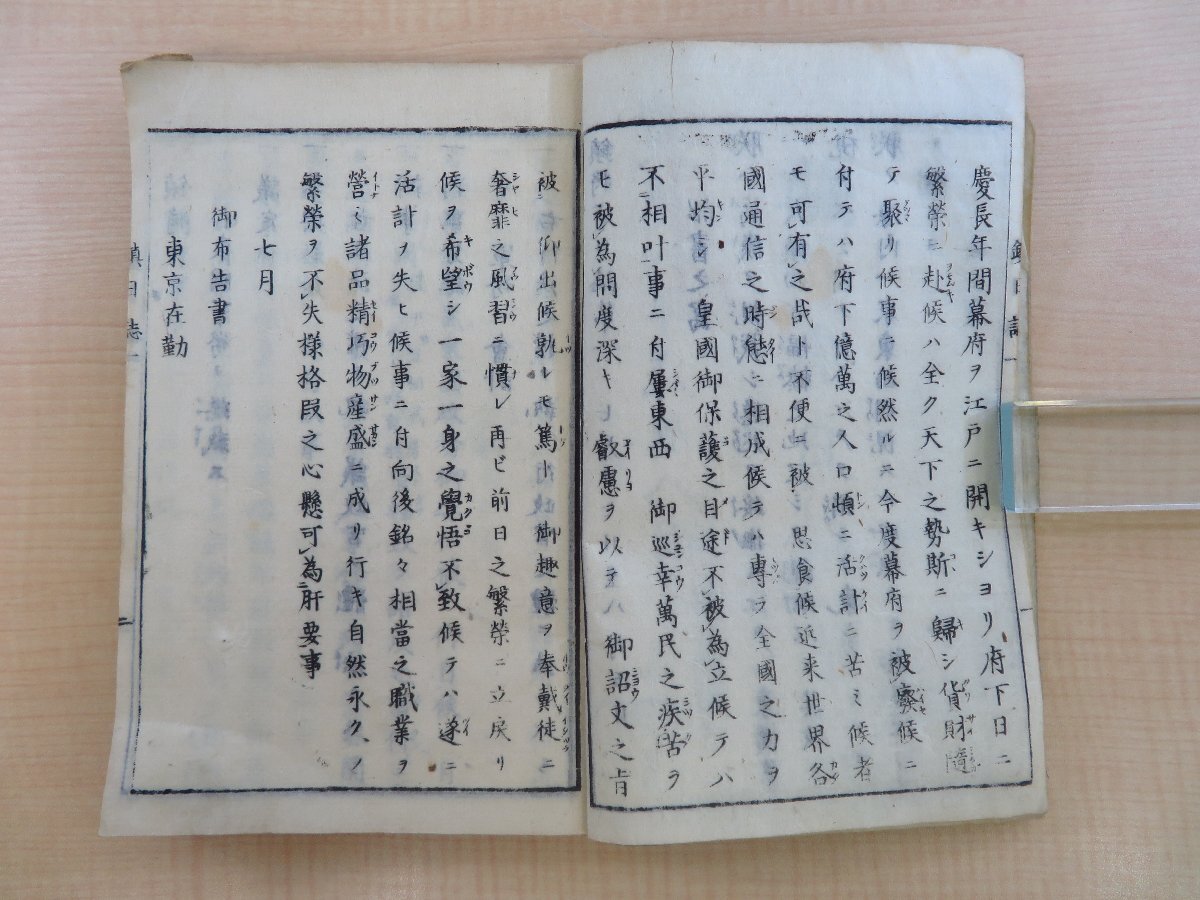 慶長年間幕府ヲ江戸ニ開キショリ府下日ニ
繁榮ニ赴候ハ全ク天下之勢斯ニ歸シ貨財隨
テ聚リ候事ニ候然ルニ今度幕府ヲ被廢候ニ
付テハ府下億萬之人口頓ニ活計ニ苦ミ候者
モ可有之哉ト不便ニ被思食候近来世界各
國通信之時態ニ相成候テハ專ラ全國之力ヲ
平均シ 皇國御保護之目途不被為立候テハ
不相叶事ニ付屢東西 御巡幸萬民之疾苦ヲ
モ被為問度深キ 叡慮ヲ以テ 御詔文之旨
被仰出候孰レモ篤ト御趣意ヲ奉戴徒ニ
奢靡之風習ニ慣レ再ビ前日之繁榮ニ立戻リ
候ヲ希望シ一家一身之覺悟不致候テハ遂ニ
活計ヲ失ヒ候事ニ付向後銘々相當之職業ヲ
營ミ諸品精巧物産盛ニ成リ行キ自然永ク
繁榮ヲ不失様格段之心懸可為肝要事
七月
御布告書
東京在勤
鎮日誌一
二